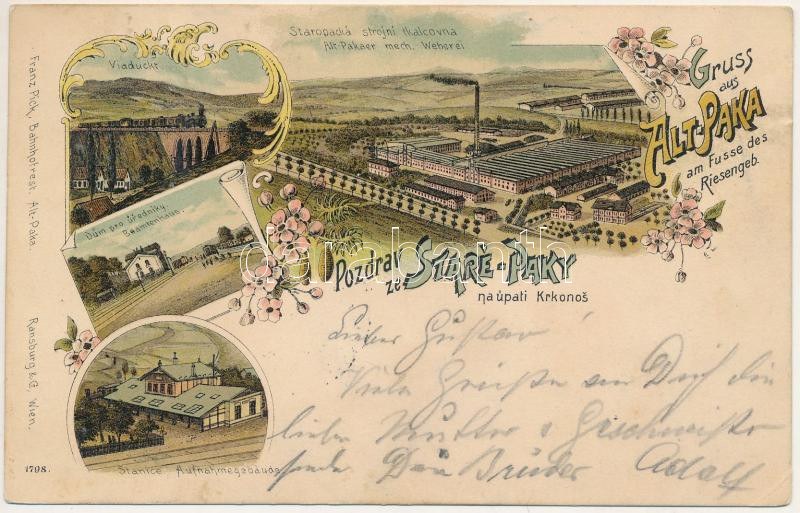 Staropacká strojní tkalcovna
Alt-Pakaer mech. Weberei
Viaduckt
Gruss
aus
ALT-PAKA
am Fusse des
Riesengeb.
Dům pro úředníky.
Beamtenhaus.
Pozdrav
ze STARÉ-PAKY
na úpatí Krkonoš
Stanice Aufnahmegebäude
Franz Pick, Bahnhofrest. Alt-Paka.
Ransburg & C. Wien.
1798.
Lieber Gustav!
Viele Grüße an Dich die
liebe Mutter & Geschwister
sendet Dein Bruder Adolf
darabanth.com